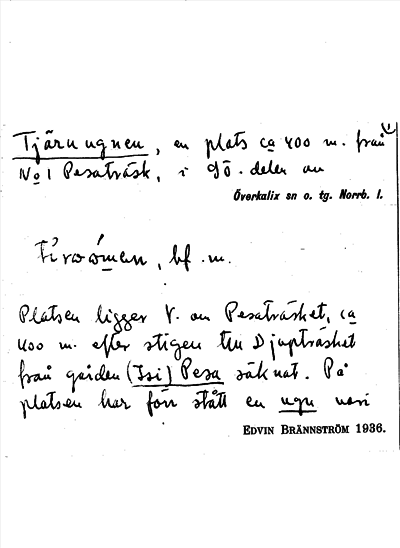 Tjärnugnen, en plats ca 400 m. från
No 1 Pesaträsk, i sö. delen av
Överkalix sn o. tg. Norrb. l.
bf. m.
Platsen ligger V. om Pesaträsket, ca
400 m. efter stigen till Djupträsket
från gården (Isi) Pesa räknat. På
platsen har förr stått en ugn vari
EDVIN BRÄNNSTRÖM 1936.